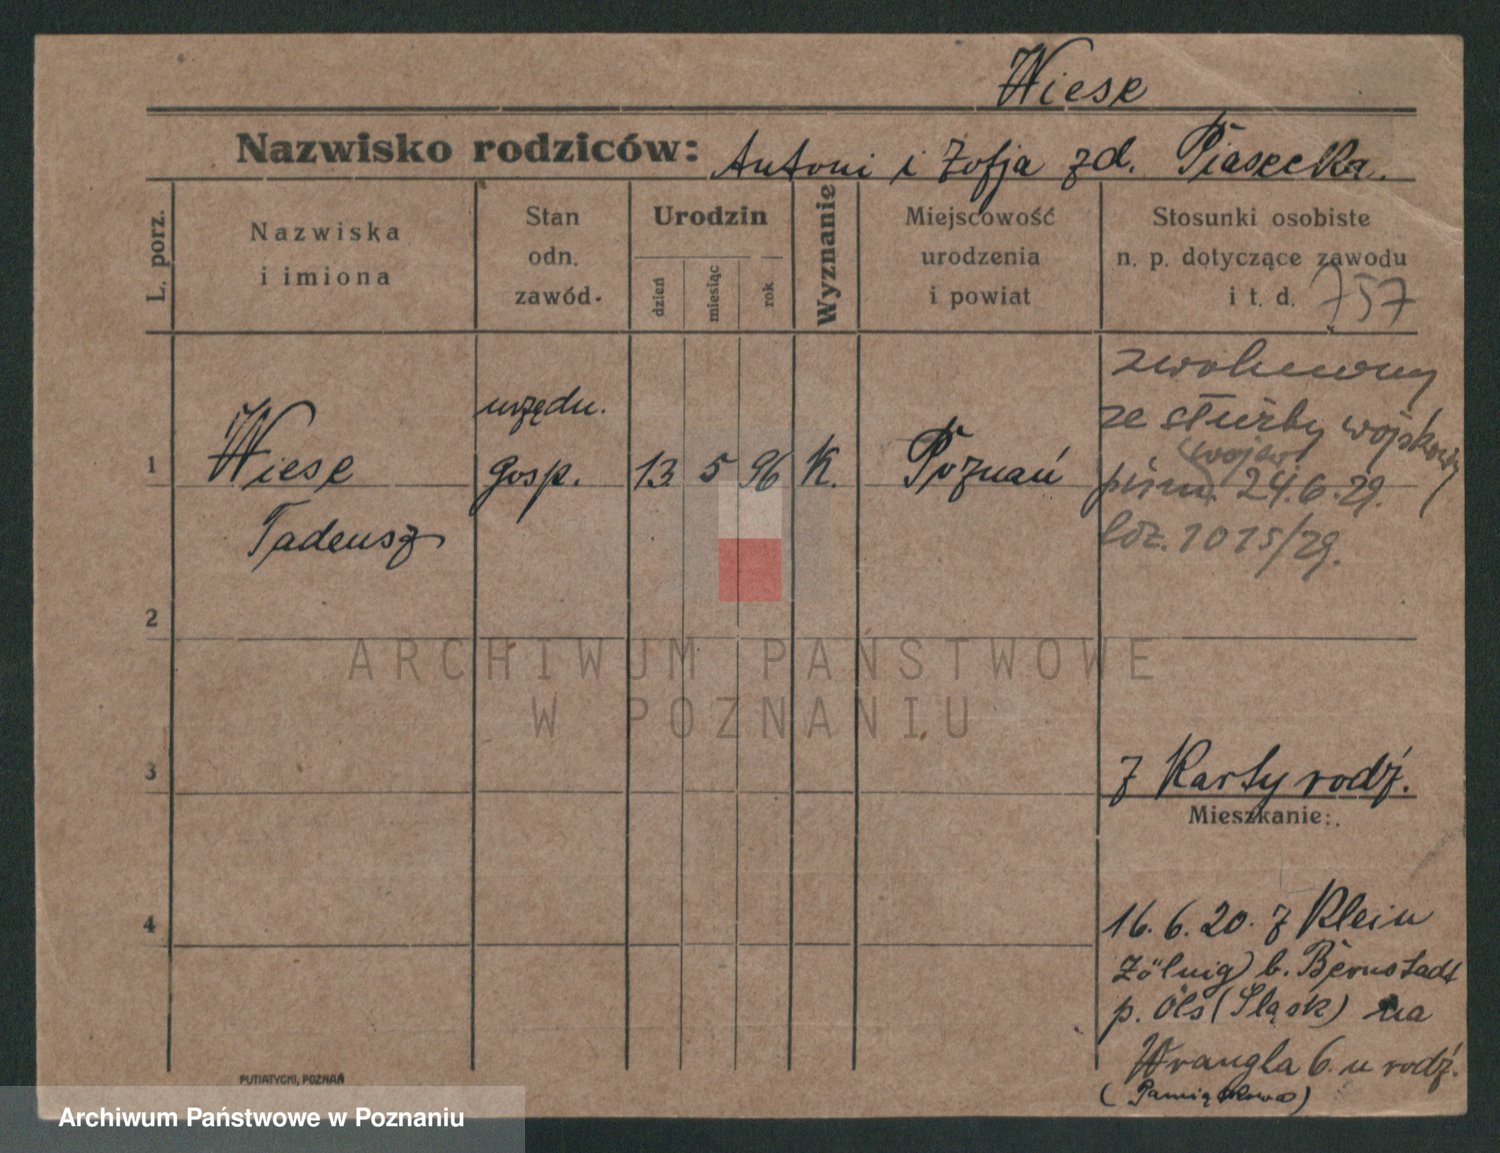 Wiese
Nazwisko rodziców: Antoni i Zofja zd. Piasecka.
L. porz.
Nazwiska
i imiona
Stan
odn.
zawód.
Urodzin
dzień
miesiąc
rok
Wyznanie
Miejscowość
urodzenia
i powiat
Stosunki osobiste
n. p. dotyczące zawodu
i t. d. 757
1
Wiese
Tadeusz
urzędn.
gosp.
13 5 96 K. Poznań
zwolniony
ze służby wojskowej
24.6.29.
1015/29.
2
3
4
ARCHIWUM PAŃSTWOWE
W POZNANIU
z Karty rodź.
Mieszkanie:
16. 6. 20. z Klein
Zölnig) b. Bernstadt
p. Öls (Śląsk) na
Wrangla 6. u rodź.
(Pamiątkowa)
PUTIATYCKI, POZNAŃ
Archiwum Państwowe w Poznaniu